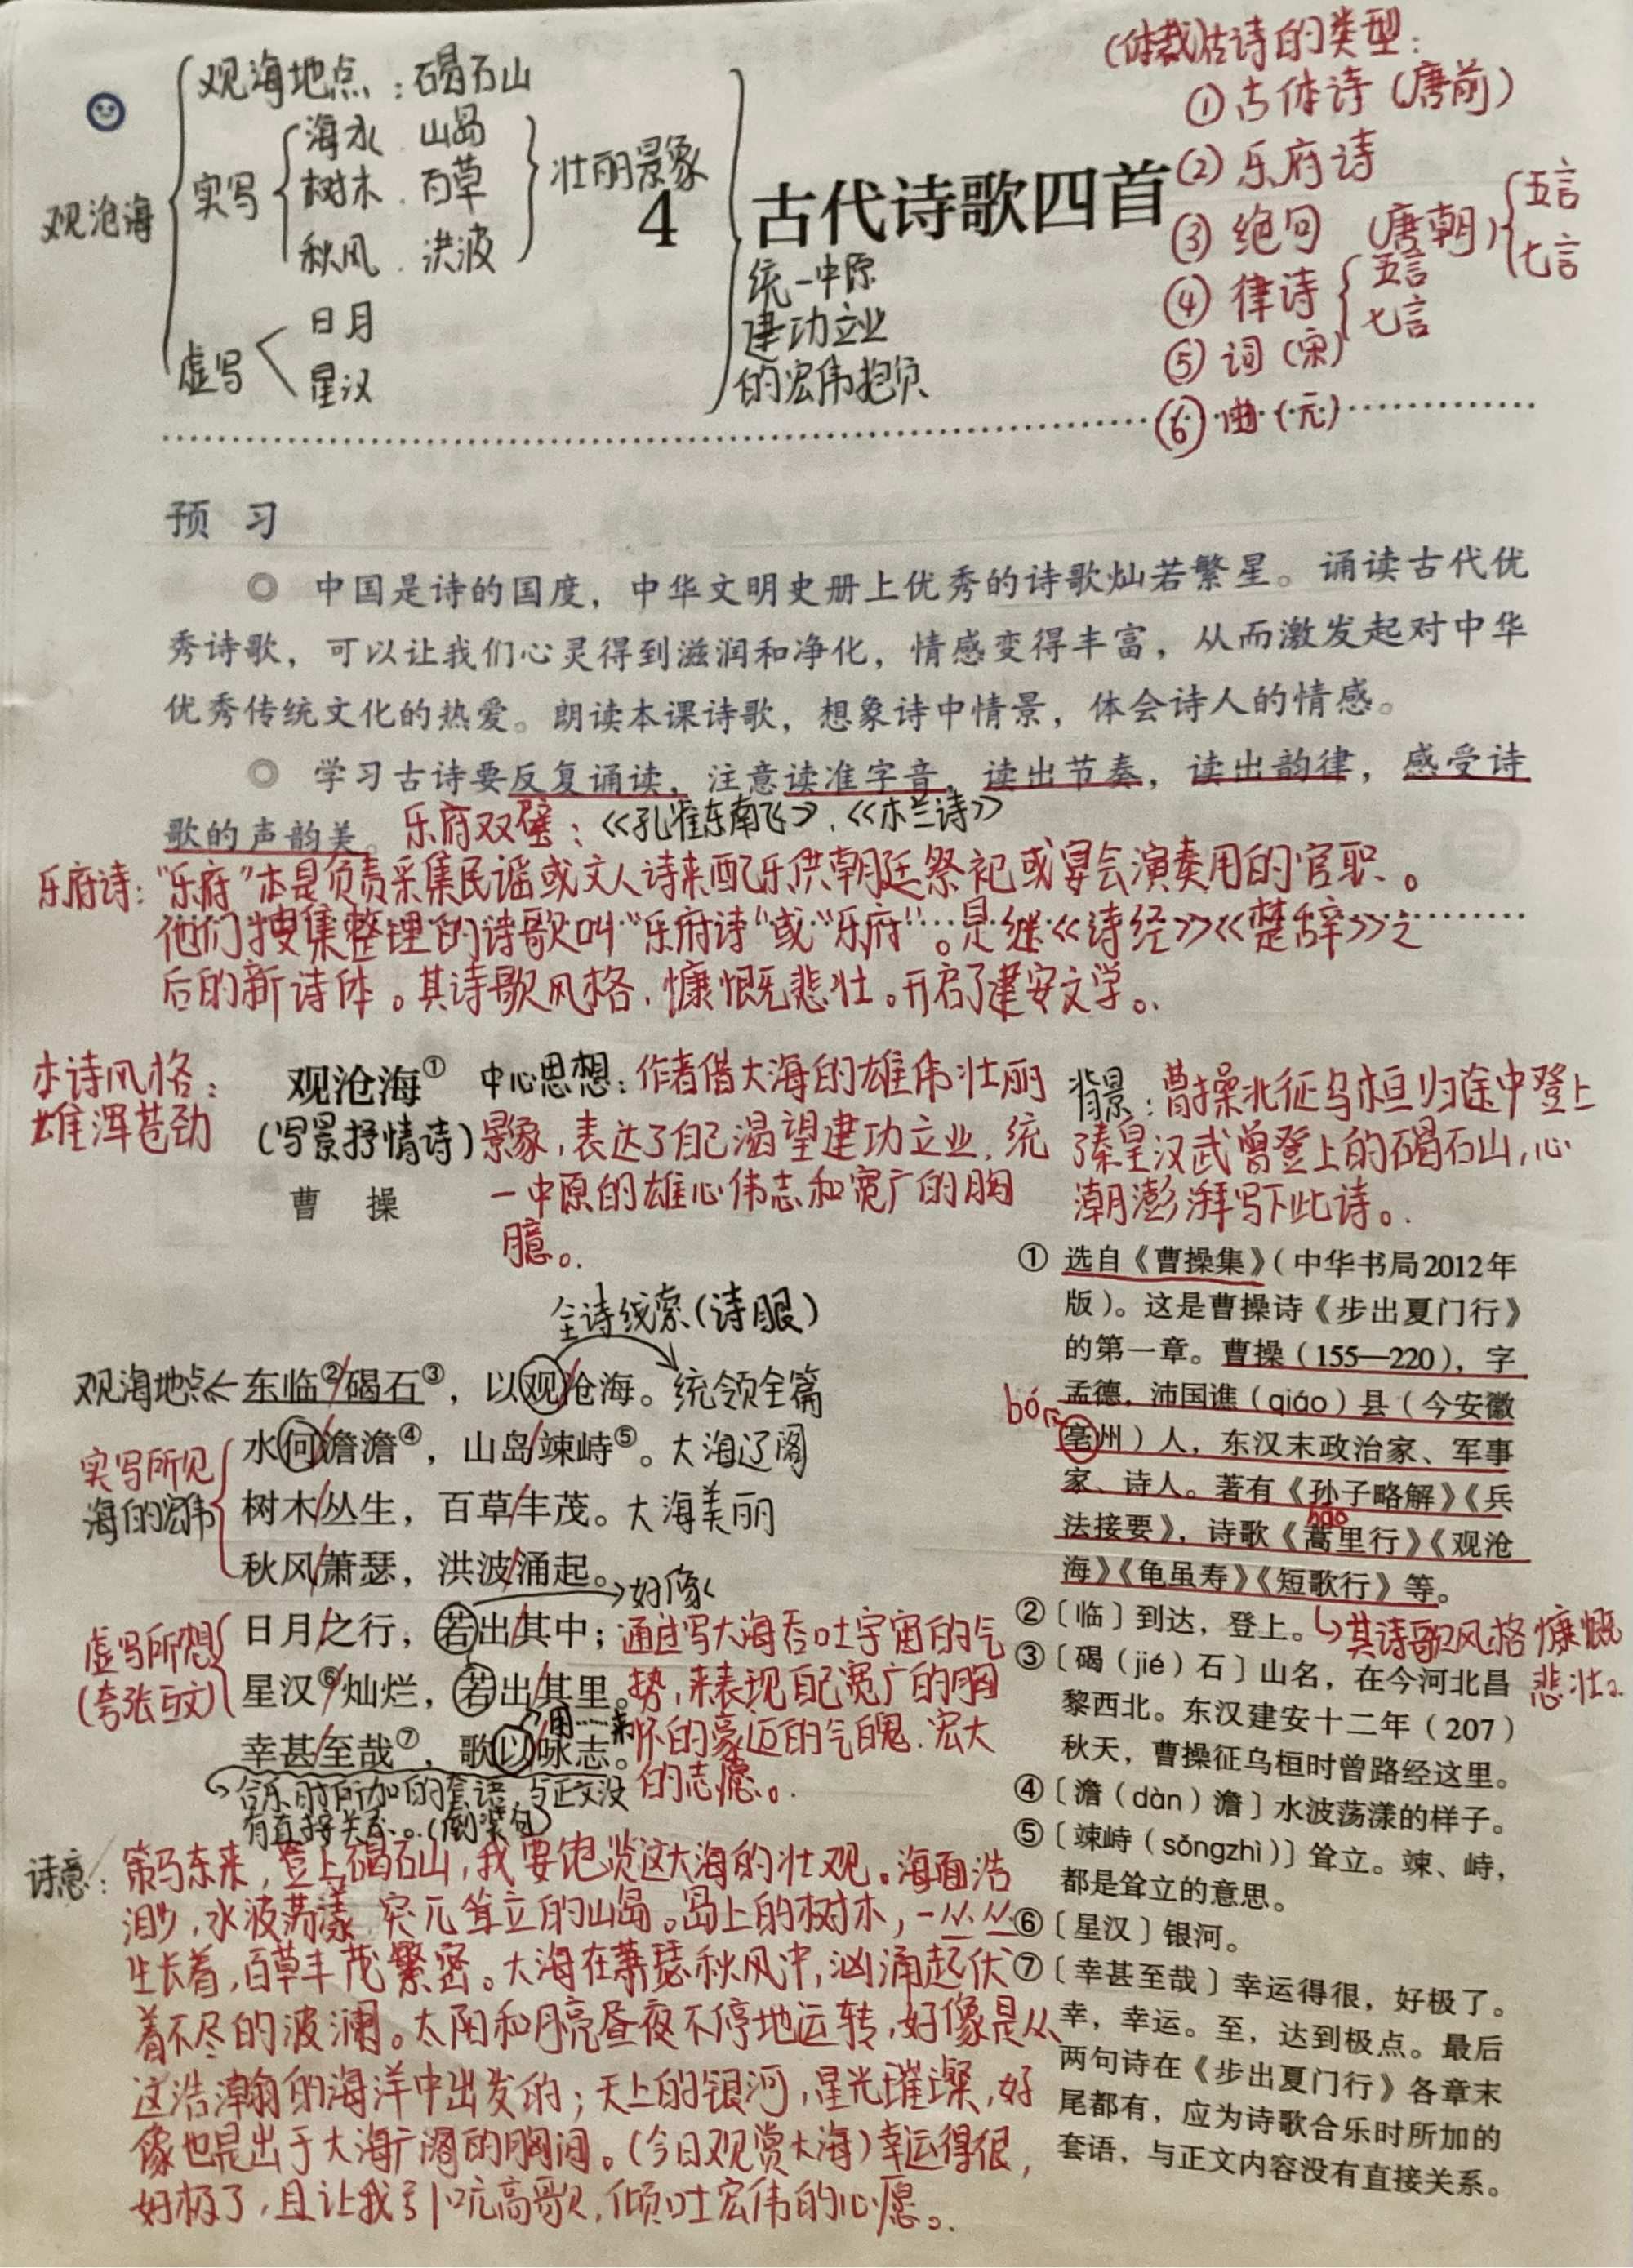 观沧海
观海地点：碣石山
实写
海水．山岛
树木．百草
秋风．洪波
壮丽景象
虚写
日月
星汉
4 古代诗歌四首
统一中原
建功立业
的宏伟抱负
(体裁)古诗的类型：
①古体诗（唐前）
②乐府诗
③绝句（唐朝）
五言
七言
④律诗
五言
七言
⑤词（宋）
⑥曲（元）
预 习
◎ 中国是诗的国度，中华文明史册上优秀的诗歌灿若繁星。诵读古代优
秀诗歌，可以让我们心灵得到滋润和净化，情感变得丰富，从而激发起对中华
优秀传统文化的热爱。朗读本课诗歌，想象诗中情景，体会诗人的情感。
◎ 学习古诗要反复诵读，注意读准字音，读出节奏，读出韵律，感受诗
歌的声韵美。
乐府双璧：《孔雀东南飞》．《木兰诗》
乐府诗：“乐府”本是负责采集民谣或文人诗来配乐供朝廷祭祀或宴会演奏用的官职。
他们搜集整理的诗歌叫“乐府诗”或“乐府”。是继《诗经》《楚辞》之
后的新诗体。其诗歌风格，慷慨悲壮。开启了建安文学。
本诗风格：
雄浑苍劲
观沧海①
(写景抒情诗)
曹 操
中心思想：作者借大海的雄伟壮丽
景象，表达了自己渴望建功立业，统
一中原的雄心伟志和宽广的胸
臆。
背景：曹操北征乌桓归途中登上
了秦皇汉武曾登上的碣石山，心
潮澎湃写下此诗。
全诗线索(诗眼)
观海地点
东临②/碣石③，以观/沧海。
统领全篇
实写所见
海的宏伟
水何/澹澹④，山岛/竦峙⑤。
大海辽阔
树木/丛生，百草/丰茂。
大海美丽
秋风/萧瑟，洪波/涌起。
好像
虚写所想
(夸张互文)
日月/之行，若出/其中；
星汉⑥/灿烂，若出/其里。
用……来
幸甚/至哉⑦，歌以/咏志。
通过写大海吞吐宇宙的气
势，来表现自己宽广的胸
怀的豪迈的气魄．宏大
的志愿。
合乐时所加的套语，与正文没
有直接关系。(倒装句)
诗意：策马东来，登上碣石山，我要饱览这大海的壮观。海面浩
渺，水波荡漾，突兀耸立的山岛。岛上的树木，一丛丛
生长着，百草丰茂繁密。大海在萧瑟秋风中，汹涌起伏
着不尽的波澜。太阳和月亮昼夜不停地运转，好像是从
这浩瀚的海洋中出发的；天上的银河，星光璀璨，好
像也是出于大海广阔的胸间。(今日观赏大海)幸运得很，
好极了，且让我引吭高歌，倾吐宏伟的心愿。
① 选自《曹操集》（中华书局2012年
版）。这是曹操诗《步出夏门行》
的第一章。曹操（155—220），字
孟德，沛国谯（qiáo）县（今安徽
bó
亳州）人，东汉末政治家、军事
家、诗人。著有《孙子略解》《兵
法接要》，诗歌《蒿里行》《观沧
hāo
海》《龟虽寿》《短歌行》等。
其诗歌风格慷慨
悲壮。
②〔临〕到达，登上。
③〔碣（jié）石〕山名，在今河北昌
黎西北。东汉建安十二年（207）
秋天，曹操征乌桓时曾路经这里。
④〔澹（dàn）澹〕水波荡漾的样子。
⑤〔竦峙（sǒngzhì）〕耸立。竦、峙，
都是耸立的意思。
⑥〔星汉〕银河。
⑦〔幸甚至哉〕幸运得很，好极了。
幸，幸运。至，达到极点。最后
两句诗在《步出夏门行》各章末
尾都有，应为诗歌合乐时所加的
套语，与正文内容没有直接关系。